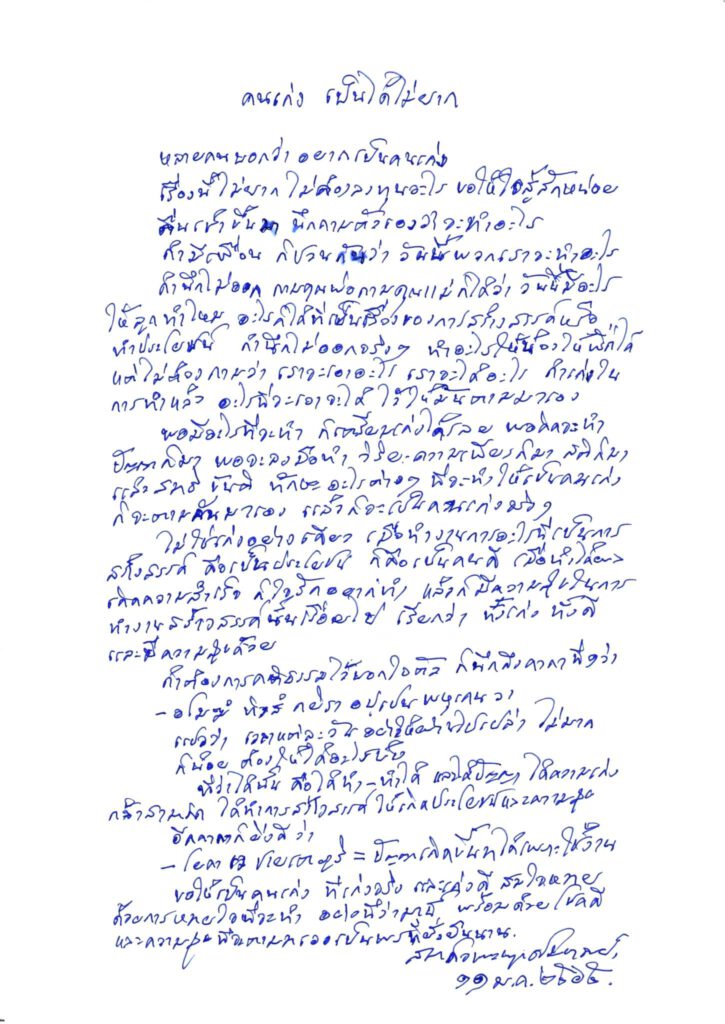 คนเก่ง เป็นได้ไม่ยาก
หลายคนบอกว่า อยากเป็นคนเก่ง
เรื่องนี้ไม่ยาก ไม่ต้องลงทุนอะไร ขอให้ใจสู้สักหน่อย
ตื่นเช้าขึ้นมา นึกถามตัวเองว่าจะทำอะไร
ถ้ามีเพื่อน ก็ชวนกันว่า วันนี้พวกเราจะทำอะไร
ถ้านึกไม่ออก ถามคุณพ่อถามคุณแม่ก็ได้ว่า วันนี้มีอะไร
ให้ลูกทำไหม อะไรก็ได้ที่เป็นเรื่องของการสร้างสรรค์หรือ
ทำประโยชน์ ถ้านึกไม่ออกจริงๆ ทำอะไรให้น้องให้พี่ก็ได้
แต่ไม่ต้องถามว่า เราจะเอาอะไร เราจะได้อะไร ถ้าเก่งใน
การทำแล้ว อะไรที่จะเอาจะได้ ไว้ให้มันตามมาเอง
พอมีอะไรที่จะทำ ก็เตรียมเก่งได้เลย พอคิดจะทำ
ปัญญาก็มา พอจะลงมือทำ วิริยะ-ความเพียรก็มา สติก็มา
แล้วสมาธิ ขันติ ทักษะ อะไรต่างๆ ที่จะทำให้เป็นคนเก่ง
ก็จะตามกันมาเอง แล้วก็จะเป็นคนเก่งจริงๆ
ไม่ใช่เก่งอย่างเดียว เมื่อทำงานการอะไรที่เป็นการ
สร้างสรรค์ คือเป็นประโยชน์ ก็คือเป็นคนดี เมื่อทำได้ผล
เกิดความสำเร็จ ก็ใจรักอยากทำ แล้วก็มีความสุขในการ
ทำงานสร้างสรรค์นั้นเรื่อยไป เรียกว่า ทั้งเก่ง ทั้งดี
และมีความสุขด้วย
ถ้าต้องการคติธรรมไว้บอกใจตัว ก็นึกถึงคาถาที่ว่า
- อโมฆํ ทิวสํ กยิรา อปฺเปน พหุเกน วา
แปลว่า เวลาแต่ละวัน อย่าให้ผ่านไปเปล่า ไม่มาก
ก็น้อย ต้องให้ได้อะไรบ้าง
ที่ว่าได้นั้น คือได้ทำ - ทำได้ และได้ปัญญา ได้ความเก่ง
กล้าสามารถ ได้ทำการสร้างสรรค์ ให้เกิดประโยชน์และความสุข
อีกคาถาก็ยิ่งดี ว่า
- โยคา เว ชายเต ภูริ = ปัญญาเกิดขึ้นมาได้เพราะใช้งาน
ขอให้เป็นคนเก่ง ที่เก่งจริง และเก่งดี สมใจหมาย
ด้วยการหมายใจที่จะทำ อย่างที่ว่ามานี้ พร้อมด้วยโชคดี
และความสุข ที่จะตามมาเองเป็นพรที่ยั่งยืนนาน.
สมเด็จพระพุทธโฆษาจารย์,
๑๑ ม.ค. ๒๕๖๕.